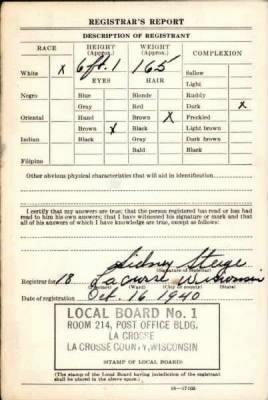 REGISTRAR'S REPORT
DESCRIPTION OF REGISTRANT
RACE HEIGHT (Approx.) WEIGHT (Approx.) COMPLEXION
White X 6ft. 1 165 Sallow
EYES HAIR Light
Negro Blue Blonde Ruddy
Gray Red Dark X
Oriental Hazel Brown X Freckled
Brown X Black Light brown
Indian Black Gray Dark brown
Bald Black
Filipino
Other obvious physical characteristics that will aid in identification
I certify that my answers are true; that the person registered has read or has had
read to him his own answers; that I have witnessed his signature or mark and that
all of his answers of which I have knowledge are true, except as follows:
Sidney
(Signature of registrar)
Registrar for 18 La Crosse Wisconsin
(Ward) (City or county) (State)
Date of registration Oct. 16 1940
LOCAL BOARD No. 1
ROOM 214, POST OFFICE BLDG.
LA CROSSE
LA CROSSE COUNTY, WISCONSIN
(STAMP OF LOCAL BOARD)
(The stamp of the Local Board having jurisdiction of the registrant
shall be placed in the above space.)